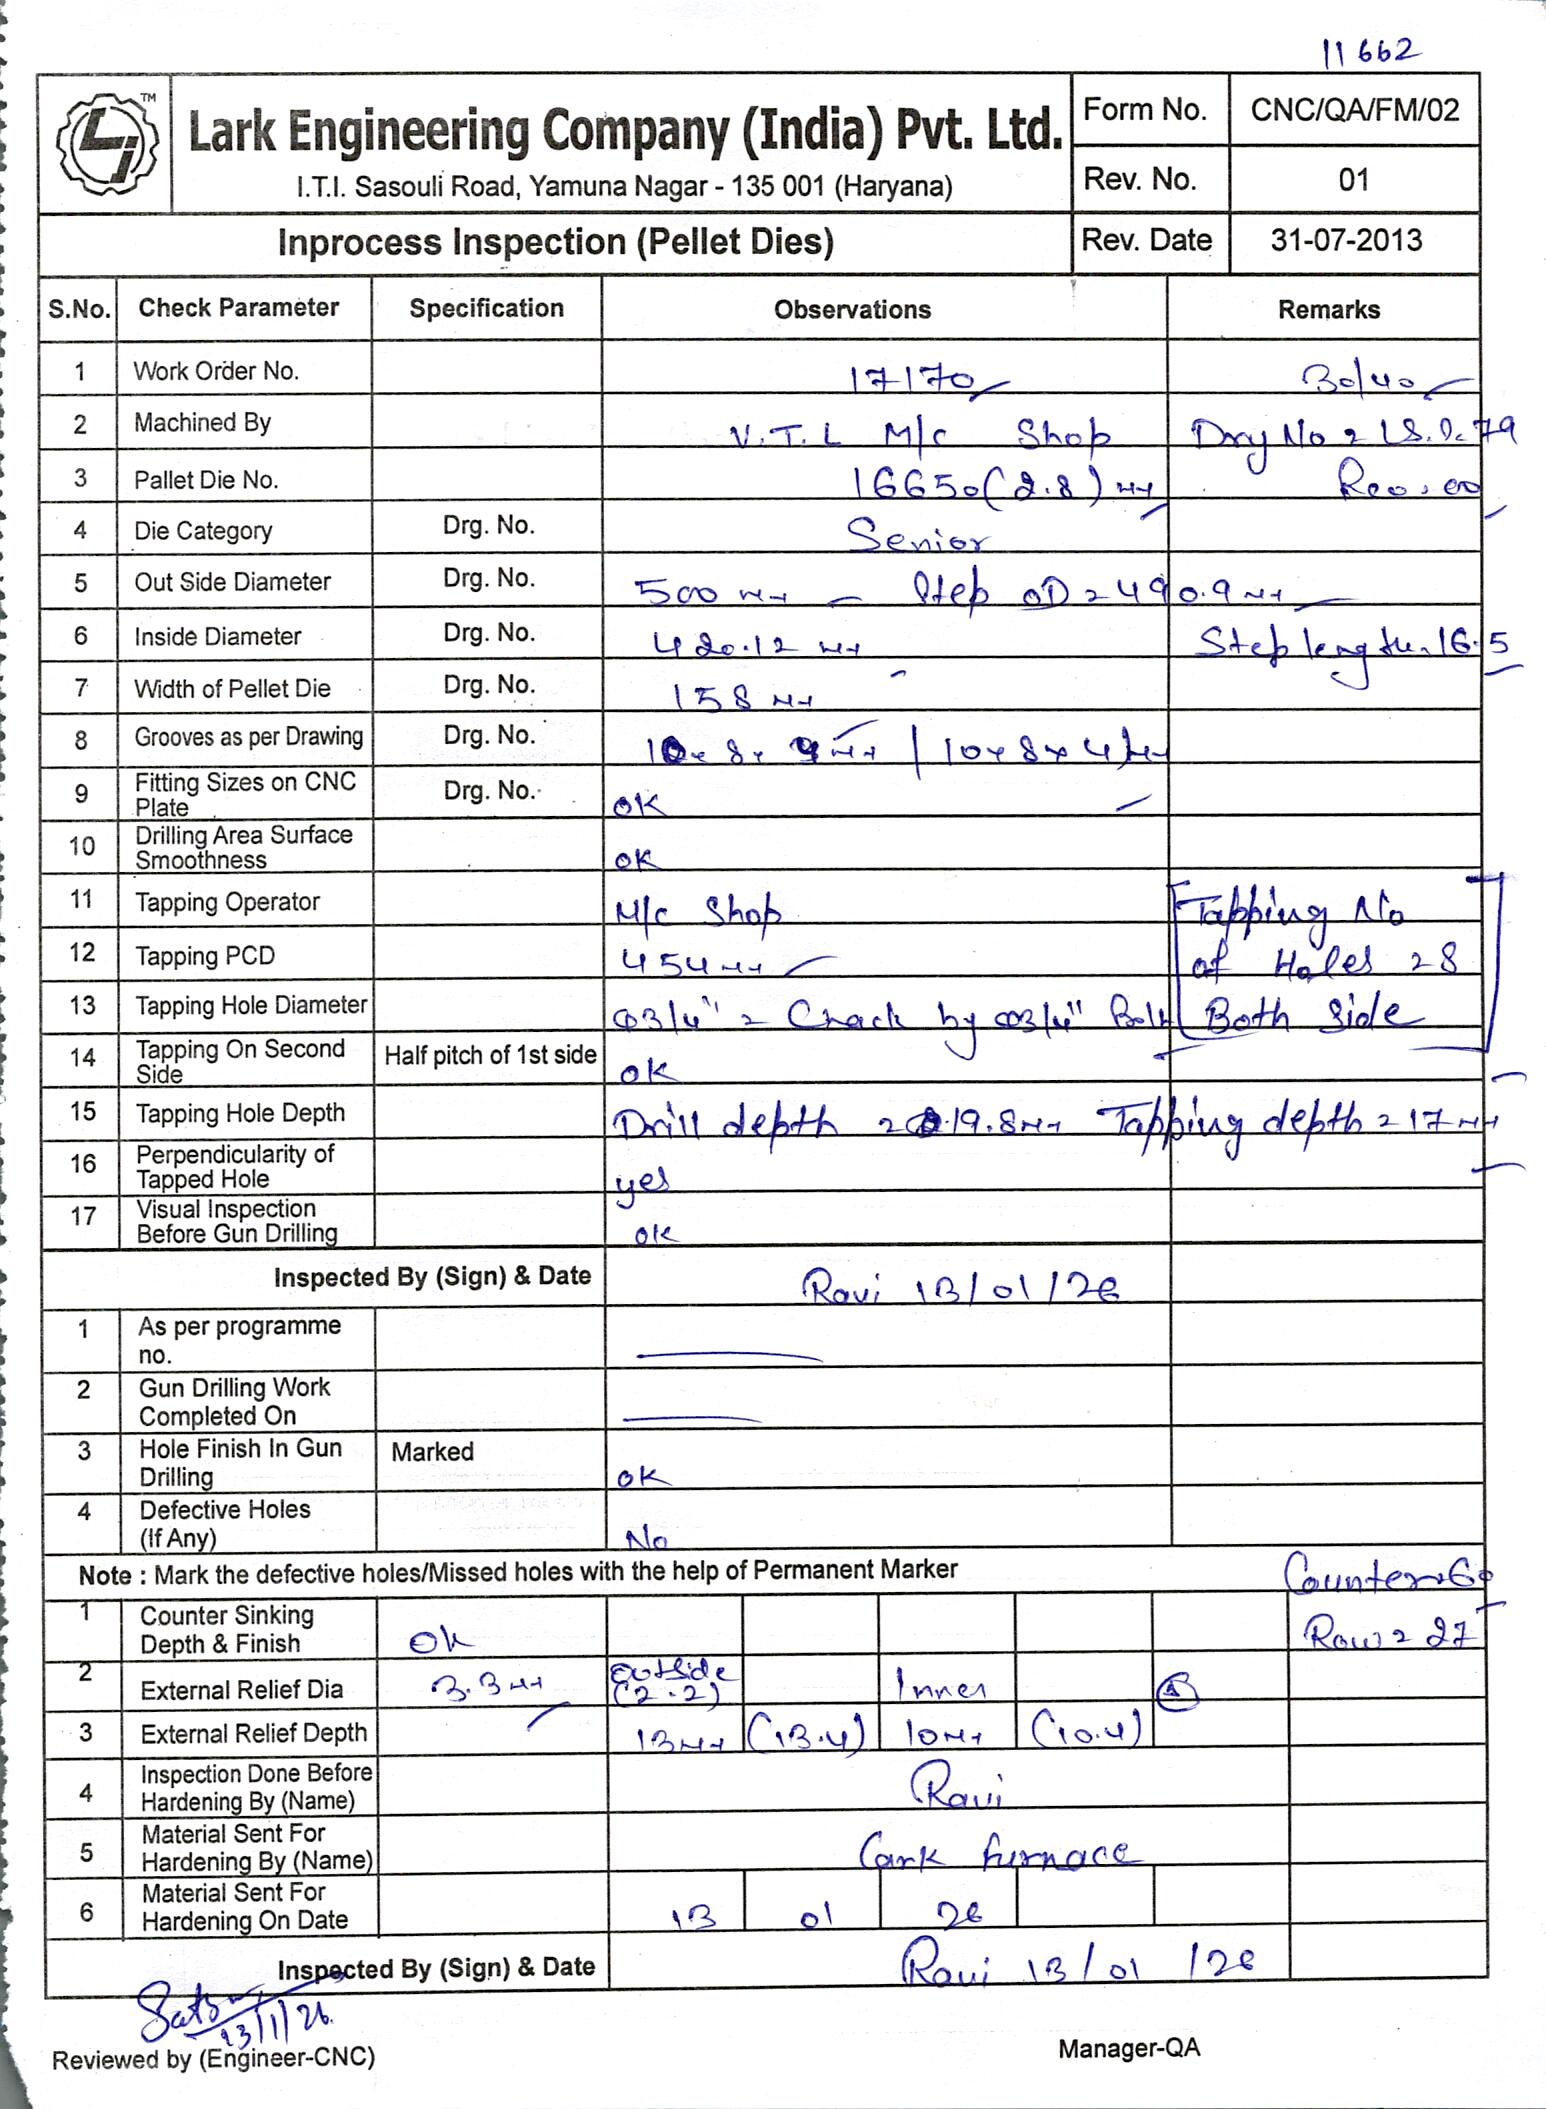 11662
TM
Lark Engineering Company (India) Pvt. Ltd.
I.T.I. Sasouli Road, Yamuna Nagar - 135 001 (Haryana)
Form No. CNC/QA/FM/02
Rev. No. 01
Inprocess Inspection (Pellet Dies)
Rev. Date 31-07-2013
S.No. Check Parameter Specification Observations Remarks
1 Work Order No. 17170 30/40
2 Machined By V.T.L M/c Shop Drg No = LS.D.79
3 Pallet Die No. 16650 (2.8) MM Rev. 00
4 Die Category Drg. No. Senior
5 Out Side Diameter Drg. No. 500 MM Step OD = 490.9 MM
6 Inside Diameter Drg. No. 420.12 MM Step length 16.5
7 Width of Pellet Die Drg. No. 158 MM
8 Grooves as per Drawing Drg. No. 10 x 8 x MM / 10 x 8 x 4 MM
9 Fitting Sizes on CNC Plate Drg. No. OK
10 Drilling Area Surface Smoothness OK
11 Tapping Operator M/c Shop Tapping No
12 Tapping PCD 454 MM of Holes = 8
13 Tapping Hole Diameter Φ3/4" = Chack by Φ3/4" Bolt Both Side
14 Tapping On Second Side Half pitch of 1st side OK
15 Tapping Hole Depth Drill depth = 19.8 MM Tapping depth = 17 MM
16 Perpendicularity of Tapped Hole yes
17 Visual Inspection Before Gun Drilling OK
Inspected By (Sign) & Date Ravi 13/01/26
1 As per programme no.
2 Gun Drilling Work Completed On
3 Hole Finish In Gun Drilling Marked OK
4 Defective Holes (If Any) No
Note : Mark the defective holes/Missed holes with the help of Permanent Marker Counter 60
1 Counter Sinking Depth & Finish OK Row = 27
2 External Relief Dia 3.3 MM Outside (2.2) Inner
3 External Relief Depth 13 MM (13.4) 10 MM (10.4)
4 Inspection Done Before Hardening By (Name) Ravi
5 Material Sent For Hardening By (Name) Lark furnace
6 Material Sent For Hardening On Date 13 01 26
Inspected By (Sign) & Date Ravi 13/01/26
13/1/26
Reviewed by (Engineer-CNC) Manager-QA